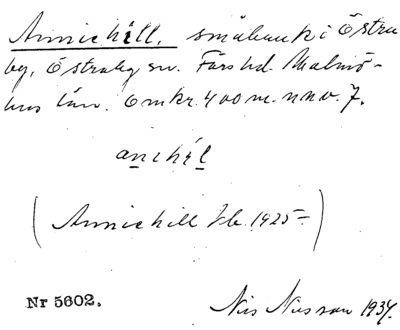 Annichill, småbruk i Östra
by, Östraby sn. Färs hd. Malmö-
hus län. Omkr. 400 m. nnv. 7.
anehýl
(Annichill Jb. 1925-)
Nr 5602.
Nils Nilsson 1934.